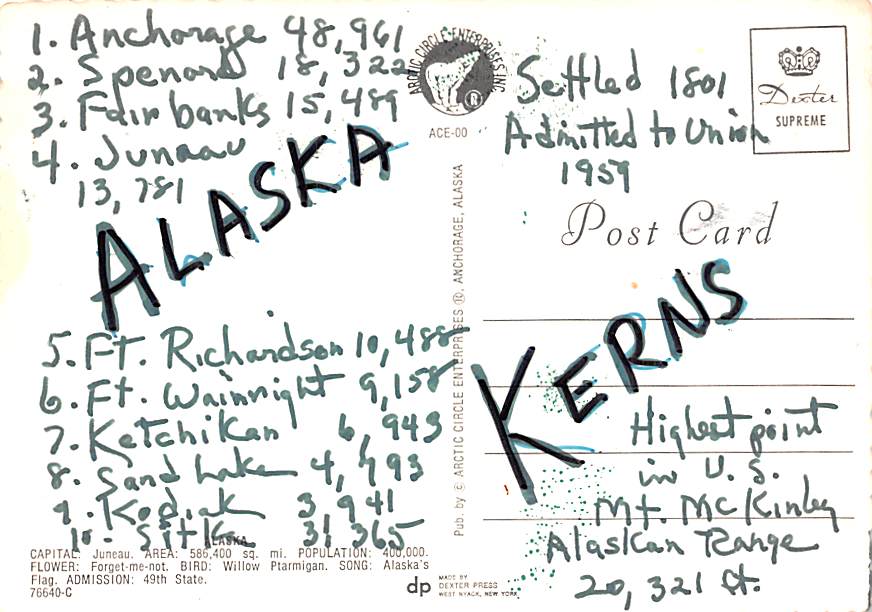 1. Anchorage 48,961
2. Spenard 18,322
3. Fairbanks 15,489
4. Juneau
13,781
ALASKA
5. Ft. Richardson 10,488
6. Ft. Wainwright 9,158
7. Ketchikan 6,943
8. Sand Lake 4,
9. Kodiak 3,941
10. Sitk 3,365
ALASKA
CAPITAL: Juneau. AREA: 586,400 sq. mi. POPULATION: 400,000.
FLOWER: Forget-me-not. BIRD: Willow Ptarmigan. SONG: Alaska's
Flag. ADMISSION: 49th State.
76640-C
ARCTIC CIRCLE ENTERPRISES INC
®
ACE-00
Pub. by © ARCTIC CIRCLE ENTERPRISES ®, ANCHORAGE, ALASKA
dp
MADE BY
DEXTER PRESS
WEST NYACK, NEW YORK
Settled 1801
Admitted to Union
1959
Dexter
SUPREME
Post Card
KERNS
Highest point
in U.S.
Mt. McKinley
Alaskan Range
20,321 ft.